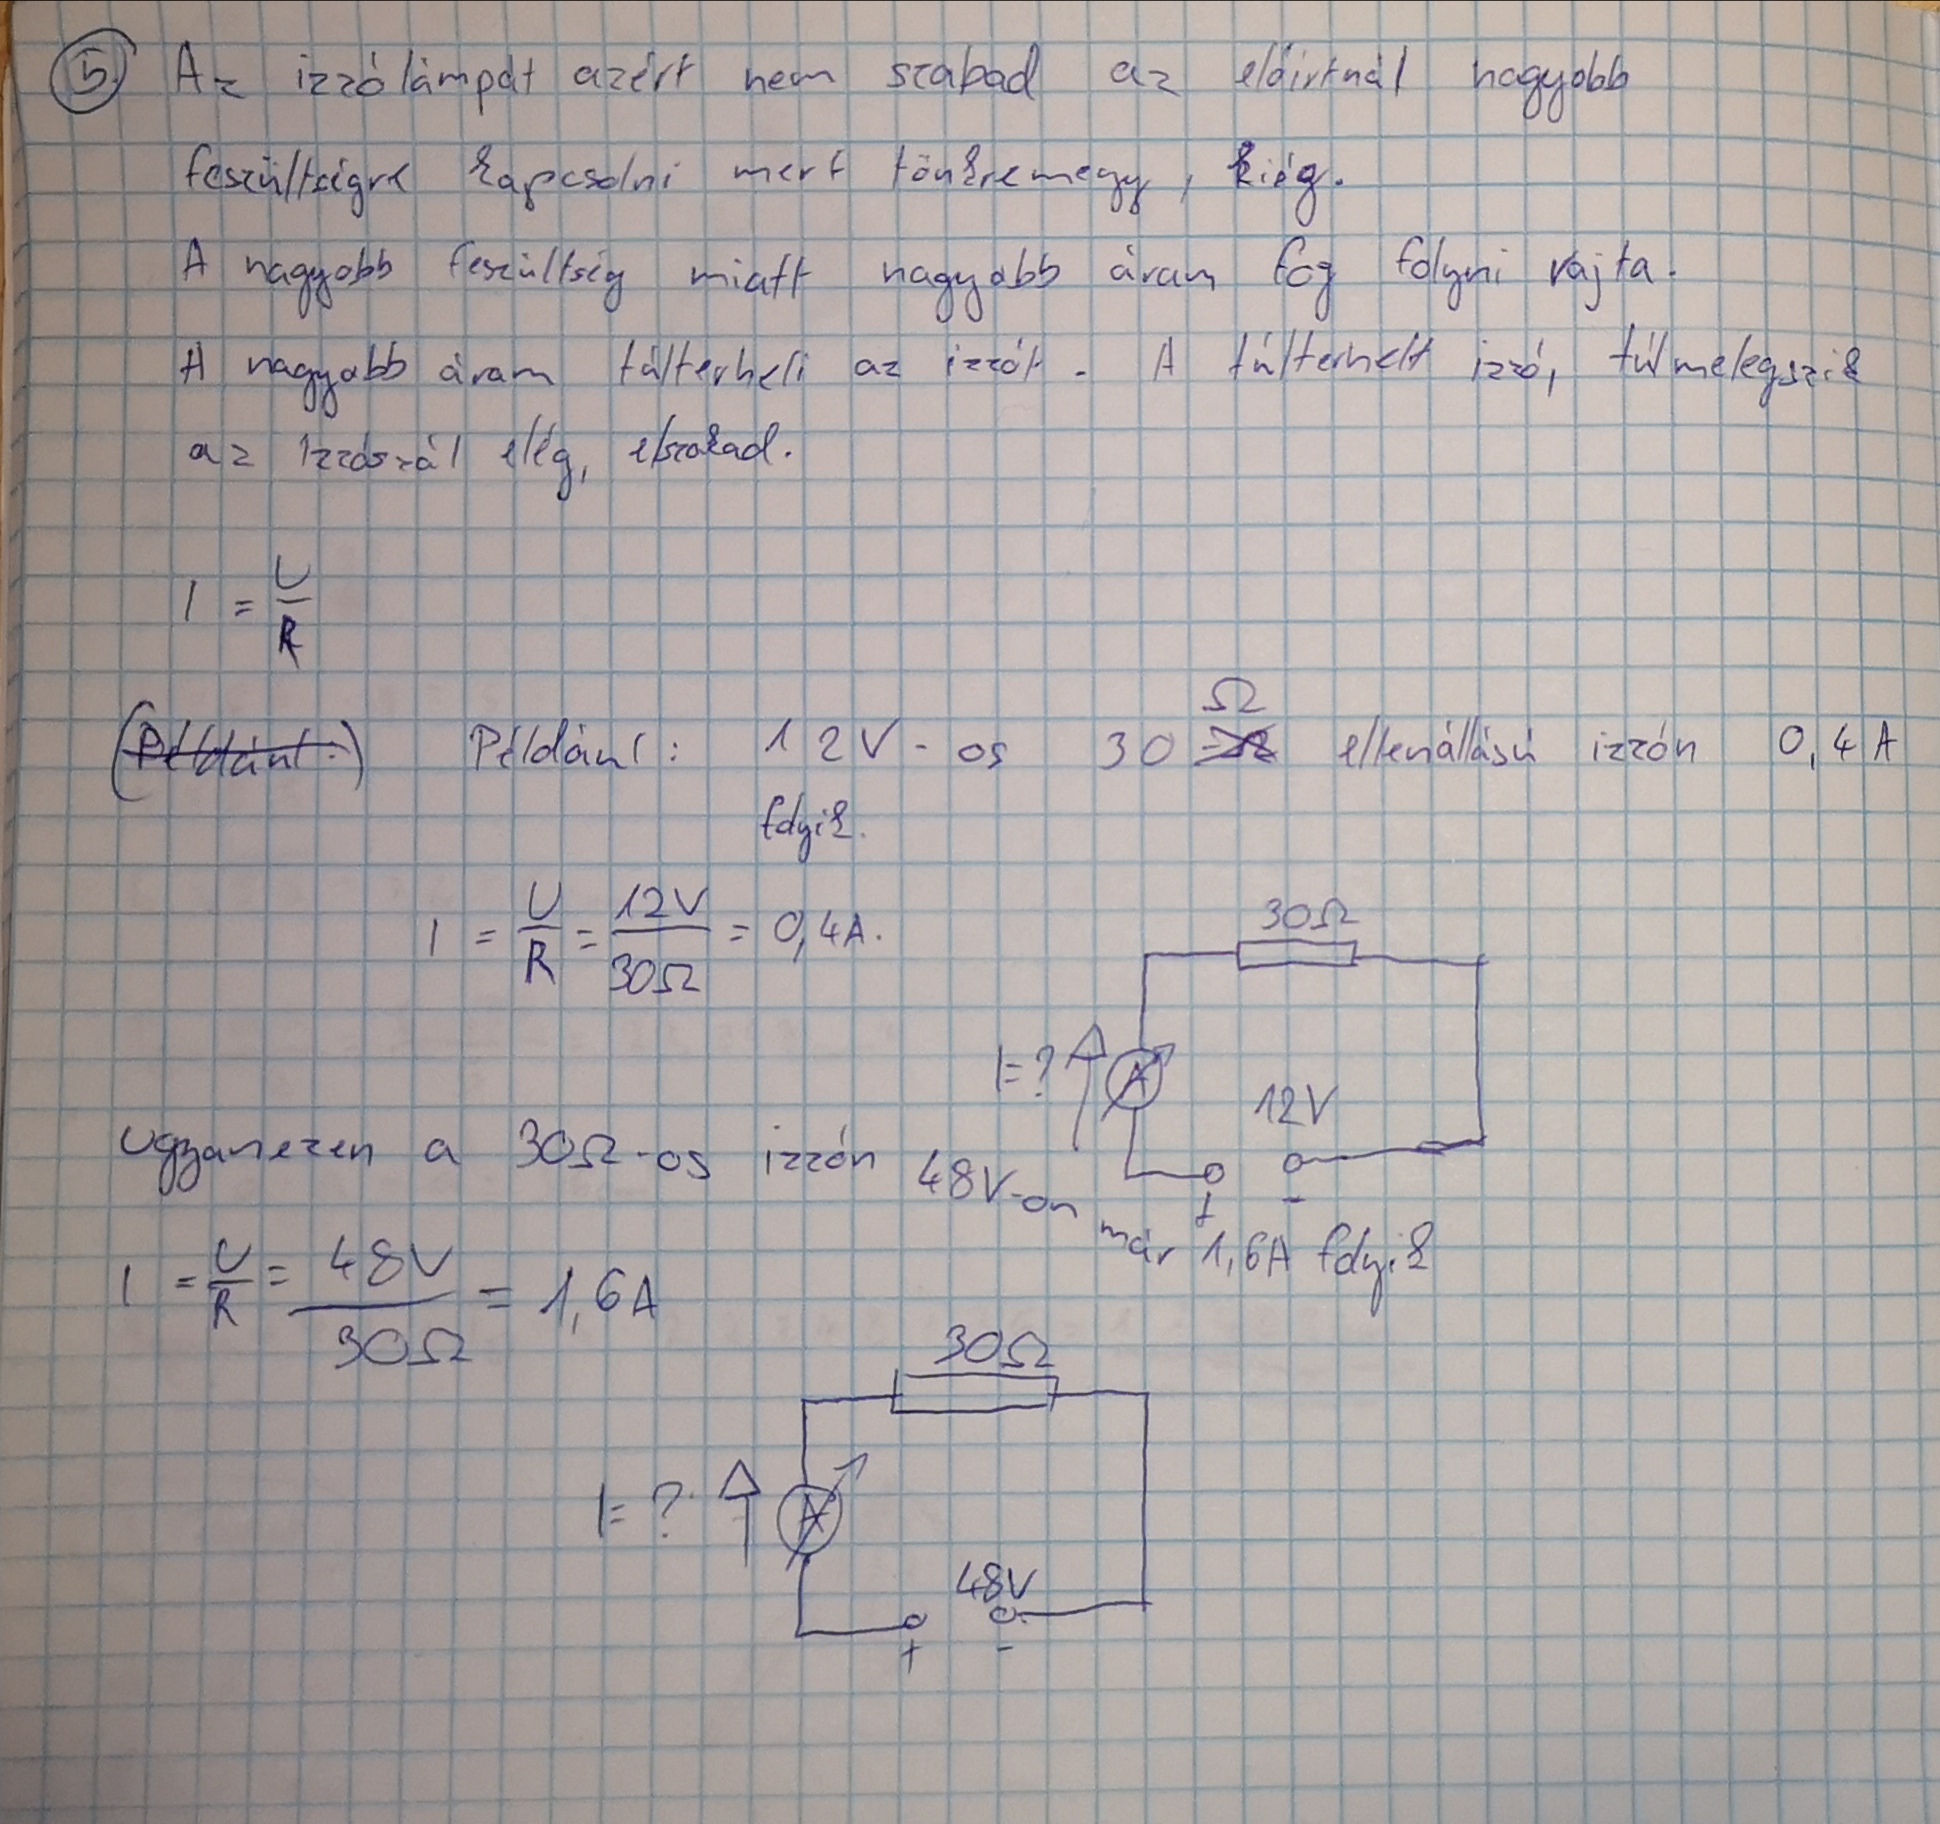 5. Az izzólámpát azért nem szabad az előírtnál nagyobb
feszültségre kapcsolni mert tönkremegy, kiég.
A nagyobb feszültség miatt nagyobb áram fog folyni rajta.
A nagyobb áram túlterheli az izzót. A túlterhelt izzó, túlmelegszik
az izzószál elég, elszakad.
I = U/R
(Például:) Például: 12V-os 30 Ω ellenállású izzón 0,4A
folyik.
I = U/R = 12V/30Ω = 0,4A.
30Ω
I=? A
12V
+ -
Ugyanezen a 30Ω-os izzón 48V-on már 1,6A folyik
I = U/R = 48V/30Ω = 1,6A
30Ω
I=? A
48V
+ -